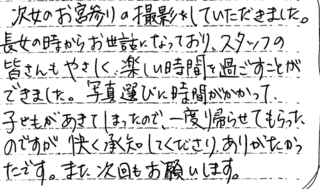 次女のお宮参りの撮影をしていただきました。
長女の時からお世話になっており、スタッフの
皆さんもやさしく、楽しい時間を過ごすことが
できました。写真選びに時間がかかって、
子どもがあきてしまったので、一度帰らせてもらった
のですが、快く承知してくださり、ありがたかっ
たです。また次回もお願いします。